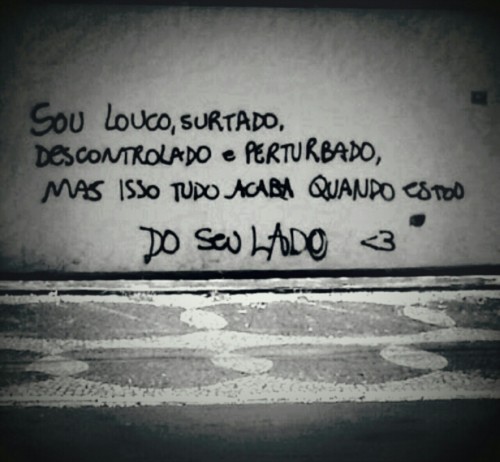 SOU LOUCO, SURTADO,
DESCONTROLADO e PERTURBADO,
MAS ISSO TUDO ACABA QUANDO ESTOU
DO SEU LADO <3